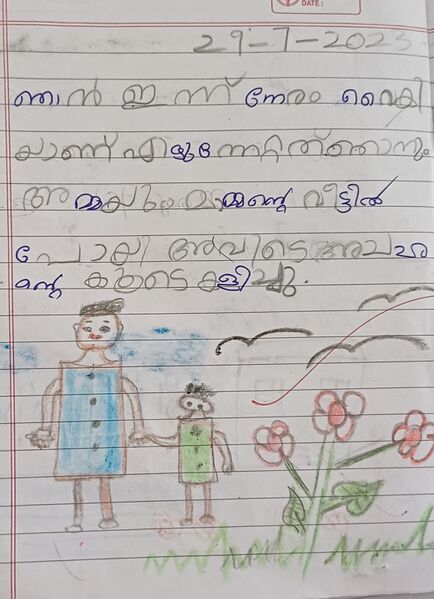 DATE:
29-7-2025
ഞാൻ ഇന്ന് നേരം വൈകി
യാണ് എഴുന്നേറ്റത് ഞാനും
അമ്മയും മാമന്റെ വീട്ടിൽ
പോയി അവിടെ
കൂടെ കളിച്ചു.